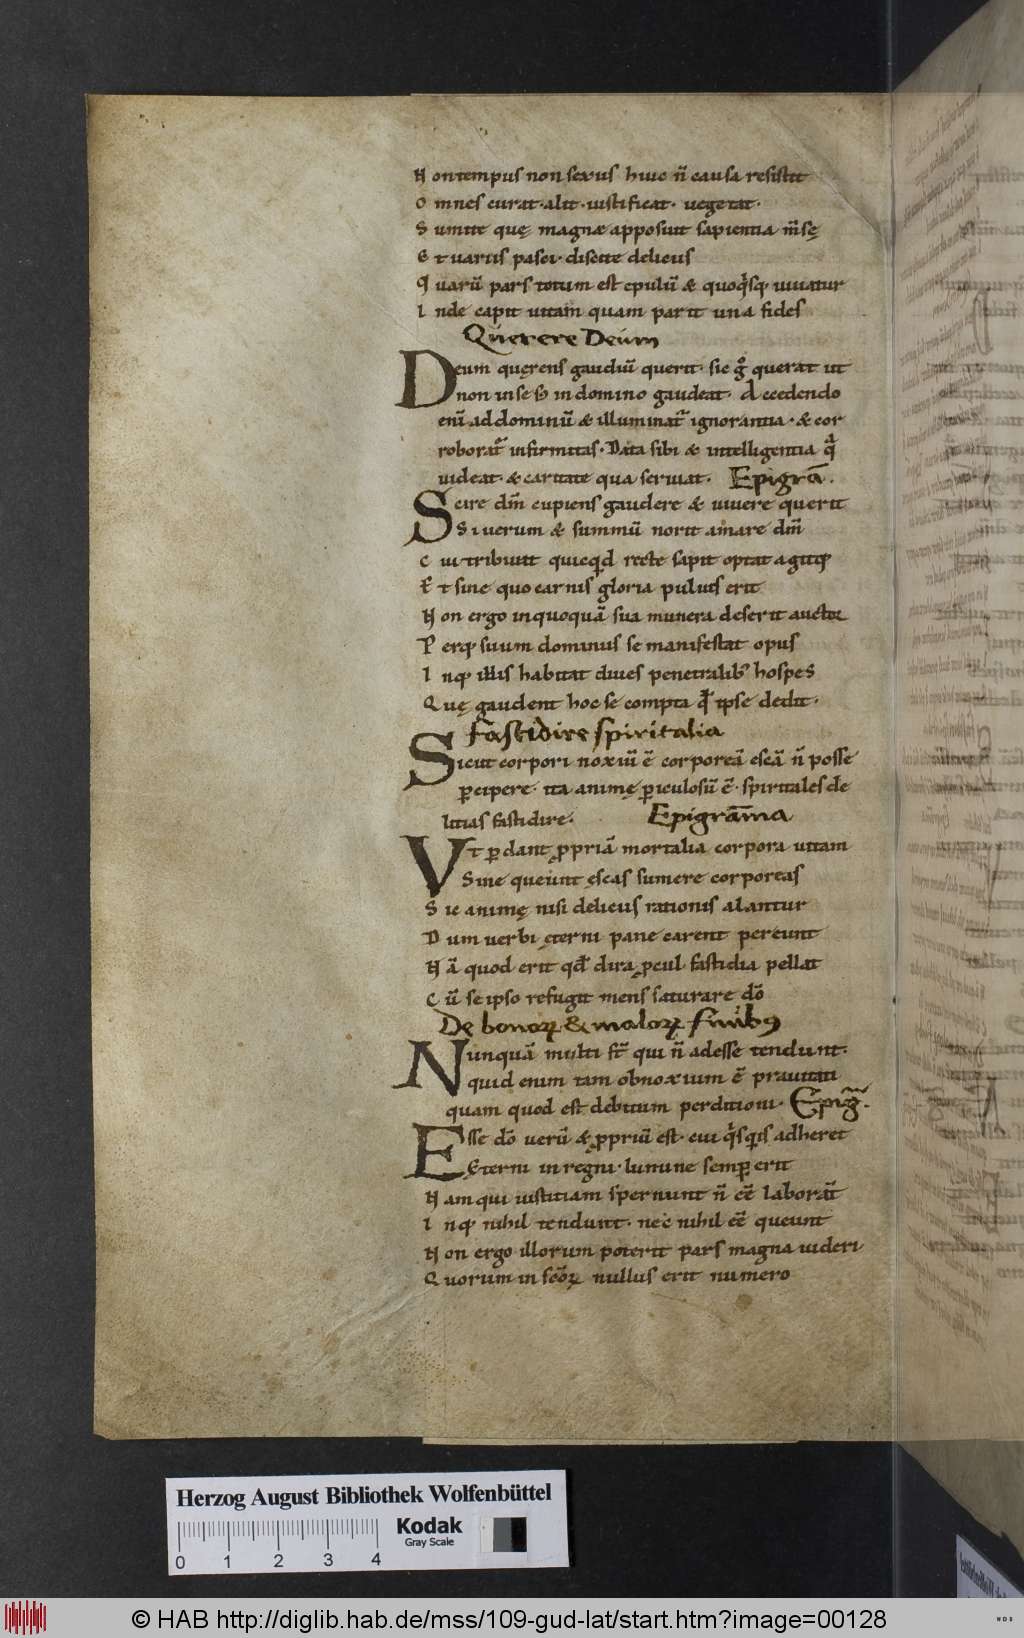 Non tempus non sexus huic ñ causa resistit
Omnes curat· alit· iustificat· uegetat·
Sumite quę magnæ apposuit sapientia m̃sę
Et uariis pasci· discite deliciis
Quarũ pars totum est epulũ & quoq̇sq; uiuatur
Inde capit uitam quam parit una fides
Querere Deum
Deum querens gaudiũ querit· sic g̊ querat ut
non in se s; in domino gaudeat· Accedendo
eni᷑ ad dominũ & illuminat᷑ ignorantia· & cor
roborat᷑ infirmitas· Data sibi & intelligentia q̃
uideat· & caritate qua seruiat· Epigrã·
Scire dm̃ cupiens gaudere & uiuere querit
Si uerum & summũ norit amare dm̃
Cui tribuit quicq̇d recte sapit optat agitq;
Et sine quo carnis gloria puluis erit
Non ergo in quoquã sua munera deserit auctor
Perq; suum dominus se manifestat opus
Inq; illis habitat diues penetralib; hospes
Quę gaudent hoc se compta q̃ ipse dedit·
Fastidire spiritalia
Sicut corpori noxiũ ẽ corporeã escã ñ posse
ꝑcipere· ita animę ꝑiculosũ ẽ· spiritales de
litias fastidire· Epigrãma
Vt ꝑdant ꝓpriã mortalia corpora uitam
Si nequeunt ęscas sumere corporeas
Sic animę nisi deliciis rationis alantur
Dum uerbi ęterni pane carent pereunt
Nã quod erit qđ dira ꝓcul fastidia pellat
Cũ se ipso refugit mens saturare dõ
De bonoꝝ & maloꝝ finibus
Nunquã multi ft᷑ qui ñ adesse tendunt·
quid enim tam obnoxium ẽ prauitati
quam quod est debitum perditioni· Epig̃·
Esse dõ uerũ & ꝓpriũ est· cui q̇sq̇s adheret
Ęterni in regni· lumine semꝑ erit
Nam qui iustitiam spernunt ñ eẽ laborãt
Inq; nihil tendunt· nec nihil eẽ queunt
Non ergo illorum poterit pars magna uideri·
Quorum in scõꝝ nullus erit numero
Herzog August Bibliothek Wolfenbüttel
Kodak
Gray Scale
0 1 2 3 4
© HAB http://diglib.hab.de/mss/109-gud-lat/start.htm?image=00128